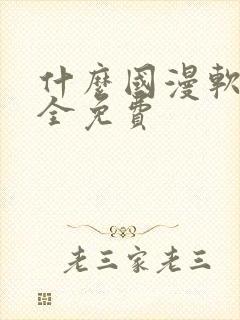 什麼國漫軟
全免費
老三家老三